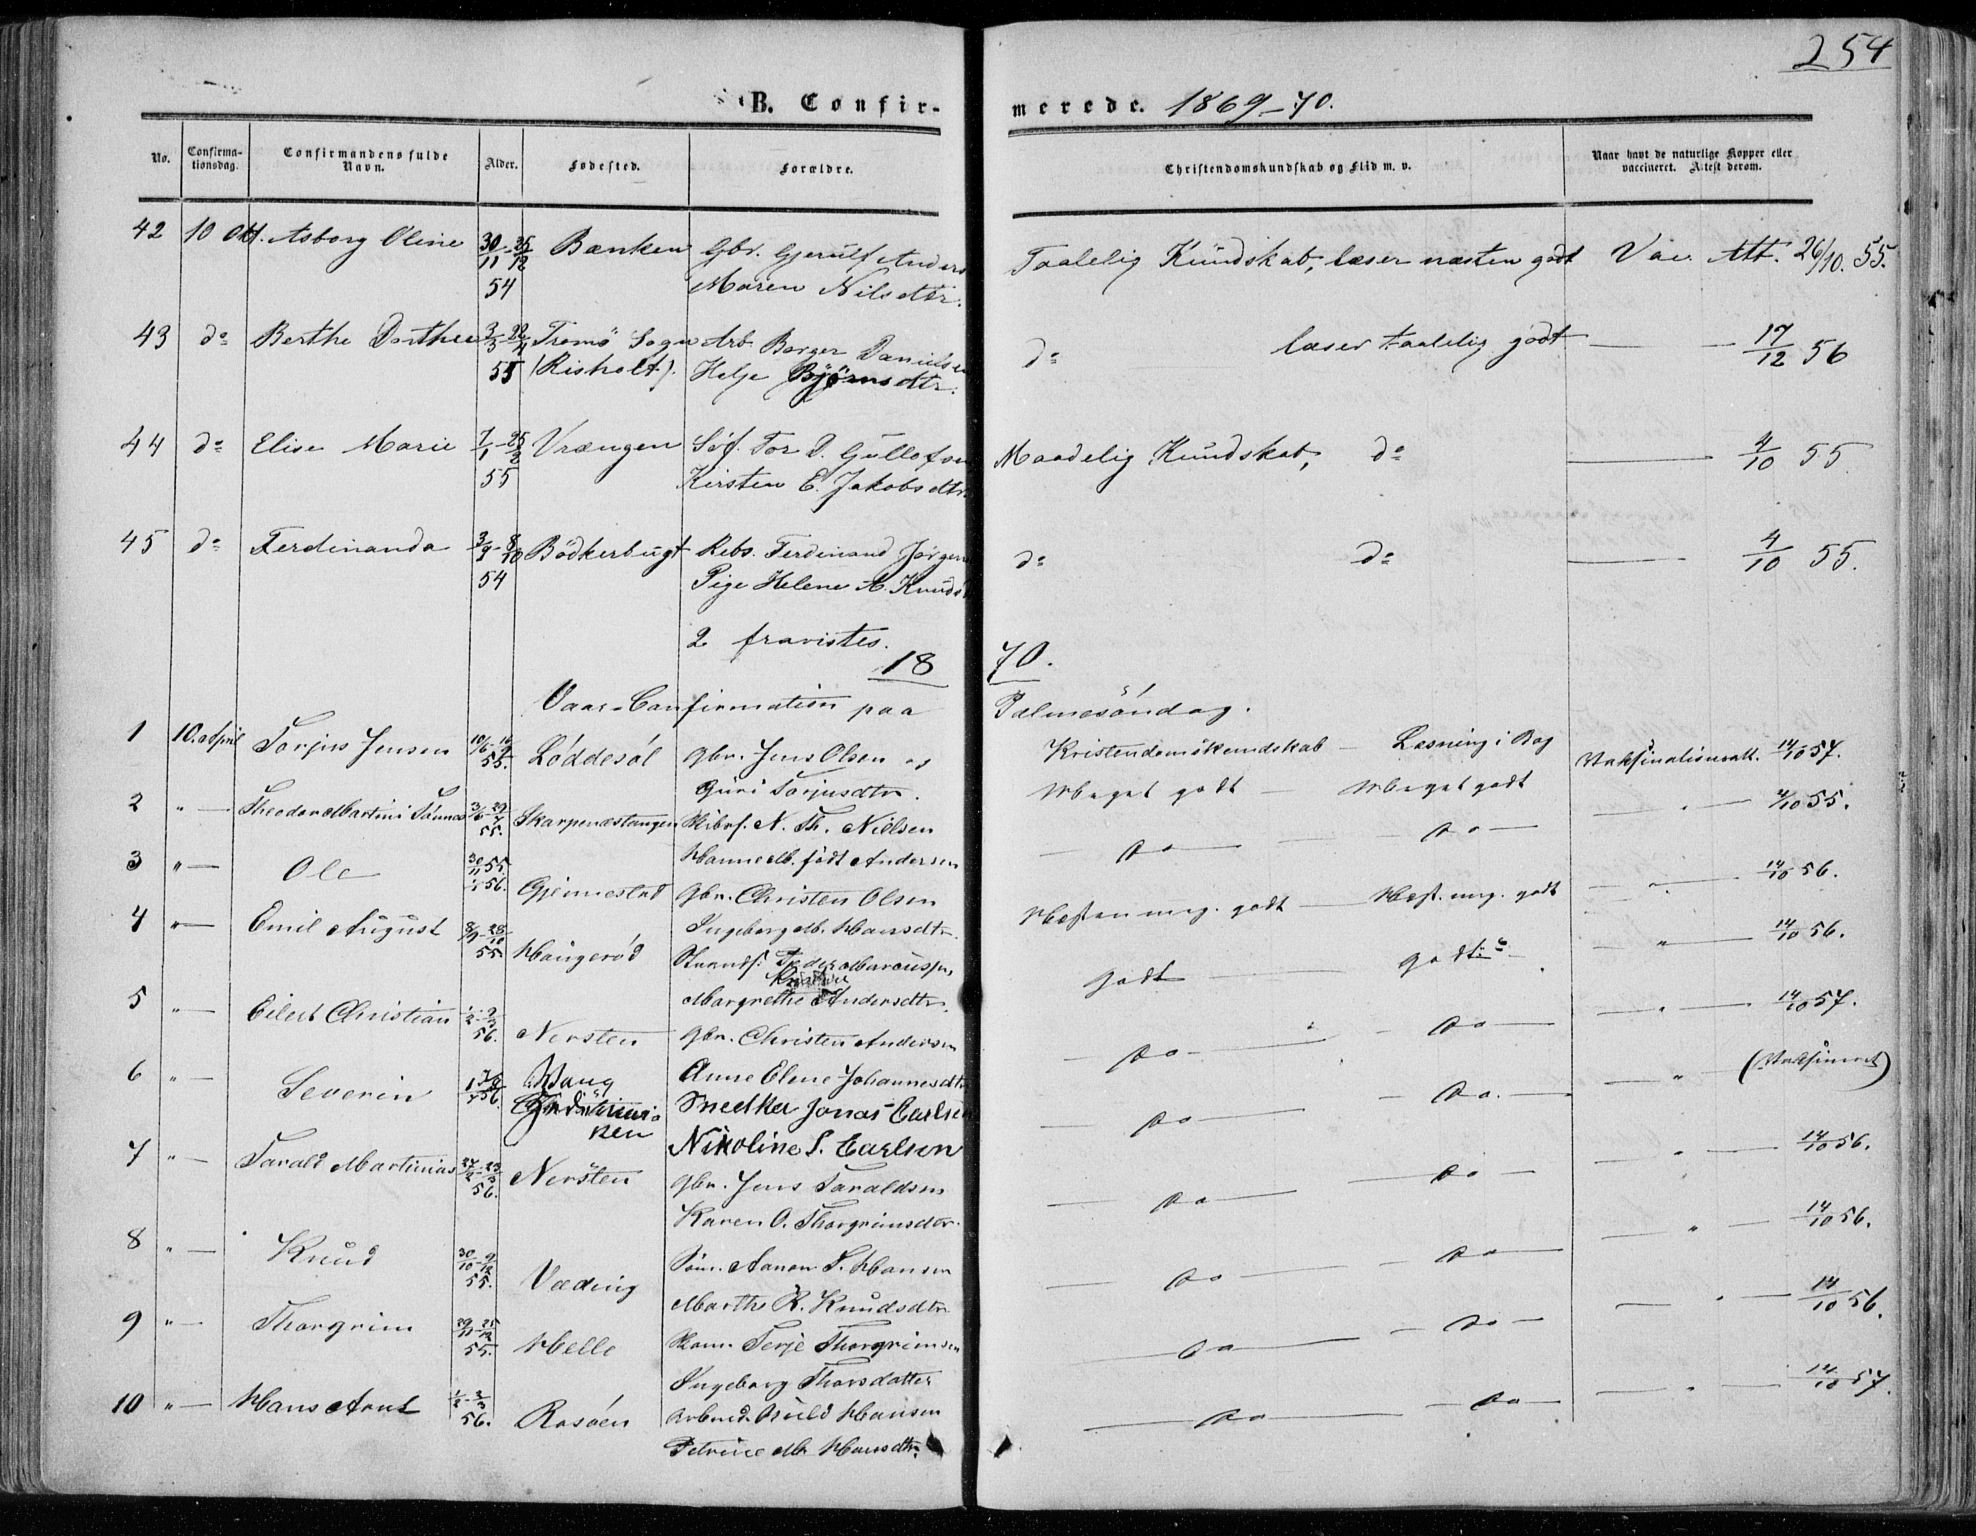 254
B. Confirmerede. 1869-70.
No. Confirmationsdag. Confirmandens fulde Navn. Alder. Fødested. Forældre. Christendomskundskab og Flid m. v. Naar havt de naturlige Kopper eller vaccineret. Attest derom.
42 10 Okt. Asborg Oline 30/11 - 25/12 Bænken Gbr. Gjerulf Anders Taalelig Kundskab, læser næsten godt Vac. Att. 26/10. 55.
54 Maren Nilsdtr.
43 do Berthe Dorthea 3/3 - 22/4 Tromö Sogn Arb. Borger Danielsen do læser taalelig godt — 17/12 56
55 (Risholt). Helje Björnsdtr.
44 do Elise Marie 7/1 - 25/2 Vrængen Söf. Tor D. Gullofsen Maadelig Kundskab, do — 4/10 55
55 Kirsten E. Jakobsdtr.
45 do Ferdinanda 3/9 - 8/10 Bödkerbugt Rebs. Ferdinand Jörgen do do — 4/10 55.
54 Pige Helene A. Knuds
2 fravistes.
18 70.
Vaar-Confirmation paa Palmesöndag.
Kristendomskundskab — Læsning i Bog
1 10. April Torjus Jensen 10/6 - 16/9 55. Löddesöl gbr. Jens Olsen og Meget godt — Meget godt Vaksinationsatt. 14/10 57.
Guri Torjusdtr.
2 " — Theodor Martin Tönnes 3/6 - 29/7 55. Skarpnæstangen Skibsf. N. Th. Nielsen — do — — do — — " — 4/10 55.
Hanne M. født Andersen
3 " — Ole 30/11 55 56. Gjennestad gbr. Christen Olsen Næsten meg. godt — Næst. meg. godt — " — 14/10 56.
Ingeborg M. Hansdtr.
4 " — Emil August 8/9 - 28/10 55 Haugeröd Strands. Peder Marcussen godt — godt — " — 14/10 56.
Margrethe Andersdtr.
5 " — Eilert Christian 1/2 - 9/3 56. Nersten gbr. Christen Andersen — do — — do — — " — 14/10 57.
Anne Elene Johannesdtr
6 " — Severin 56. Snedker Jonas Carlsen — do — — do. — " — (Vaksineret)
Nikoline S. Carlsen
7 " — Tarald Martinius 27/2 - 23/3 56. Nersten gbr. Jens Taraldsen — do — — do — — " — 14/10 56.
Karen O. Thorgrimsdtr.
8 " — Knud 30/10 - 9/12 55. Væding Söm. Aanon S. Hansen — do — — do — " — 14/10 56.
Marthe K. Knudsdtr
9 " — Thorgrim 29/11 - 25/12 55. Helle Söm. Terje Thorgrimsen — do — — do — — " — 14/10 56.
Ingeborg Thorsdatter
10 " — Hans Arnt 1/2 - 2/3 56. Rosöen Arbmd. Hansen — do — — do — — " — 14/10 57.
Petrine M. Hansdtr.